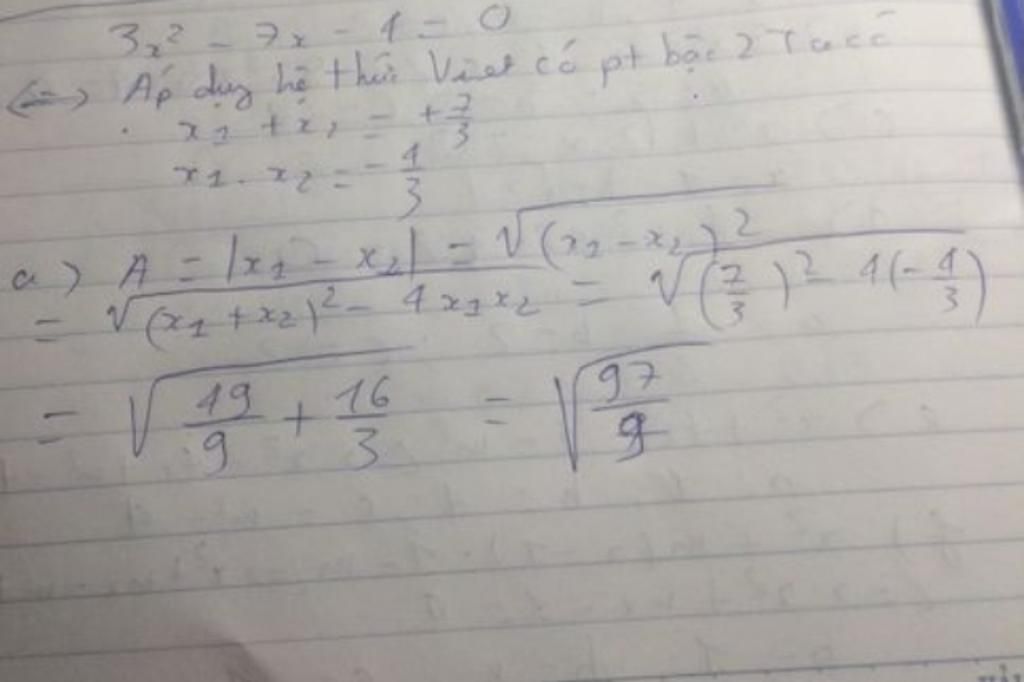 3x² - 7x - 4 = 0
(=) Áp dụng hệ thức Viet có pt bậc 2 Ta có
x₁ + x₂ = + 7/3
x₁ . x₂ = - 4/3
a) A = |x₁ - x₂| = √(x₁ - x₂)²
= √(x₁ + x₂)² - 4x₁x₂ = √(7/3)² - 4(-4/3)
= √49/9 + 16/3 = √97/9